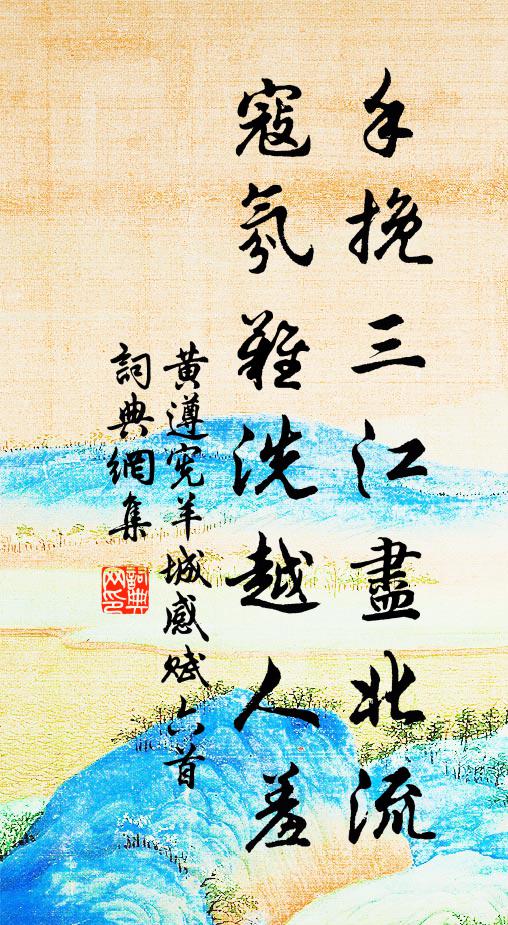 手挽三江盡北流
寇氛難洗越人羞
黃遵宪羊城感賦六首
詞典網集
詞典网印